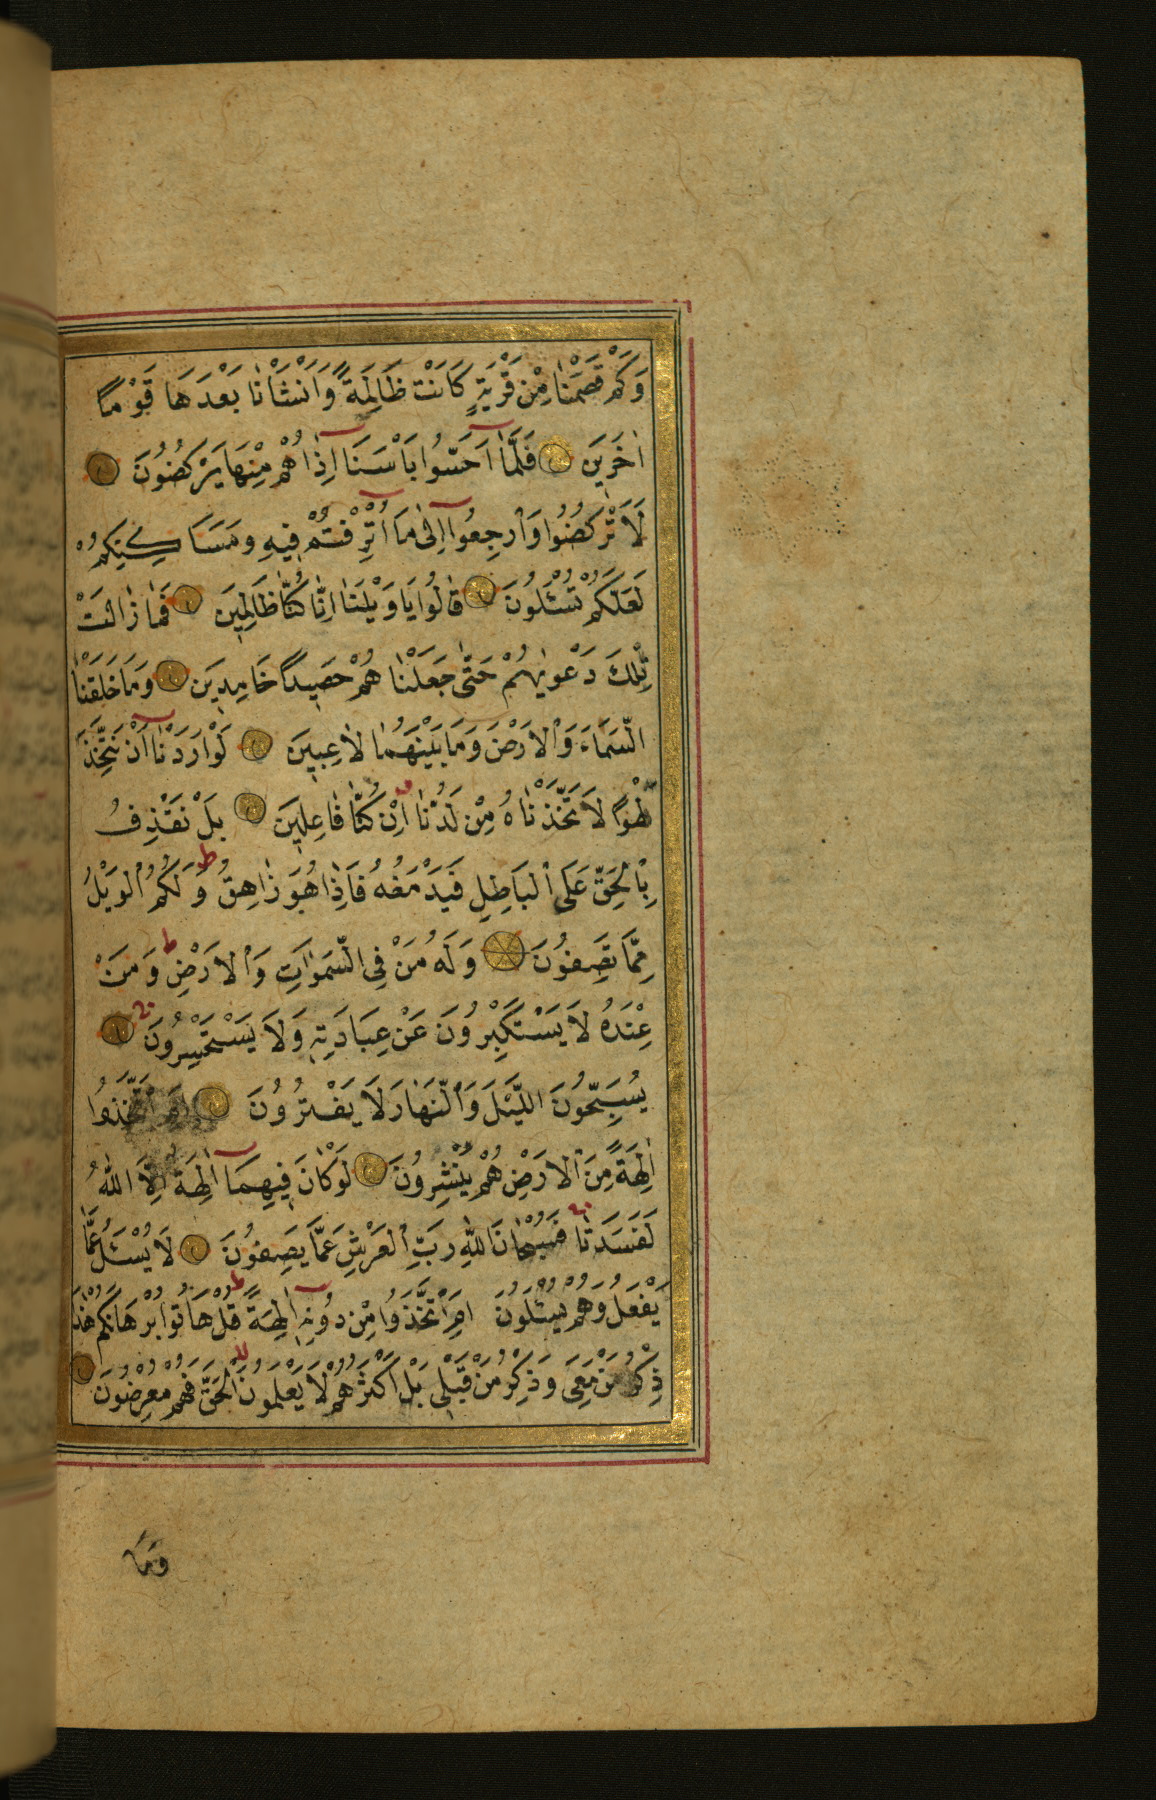 وَكَمْ قَصَمْنَا مِنْ قَرْيَةٍ كَانَتْ ظَالِمَةً وَاَنْشَاْنَا بَعْدَهَا قَوْمًا
اٰخَرِينَ فَلَمَّا اَحَسُّوا بَاْسَنَا اِذَا هُمْ مِنْهَا يَرْكُضُونَ
لَا تَرْكُضُوا وَارْجِعُوا اِلٰى مَا اُتْرِفْتُمْ فِيهِ وَمَسَاكِنِكُمْ
لَعَلَّكُمْ تُسْئَلُونَ قَالُوا يَا وَيْلَنَا اِنَّا كُنَّا ظَالِمِينَ فَمَا زَالَتْ
تِلْكَ دَعْوٰيهُمْ حَتّٰى جَعَلْنَا هُمْ حَصِيدًا خَامِدِينَ وَمَا خَلَقْنَا
السَّمَاءَ وَالْاَرْضَ وَمَا بَيْنَهُمَا لَاعِبِينَ لَوْ اَرَدْنَا اَنْ نَتَّخِذَ
لَهْوًا لَاتَّخَذْنَاهُ مِنْ لَدُنَّا اِنْ كُنَّا فَاعِلِينَ بَلْ نَقْذِفُ
بِالْحَقِّ عَلَى الْبَاطِلِ فَيَدْمَغُهُ فَاِذَا هُوَ زَاهِقٌ ط وَلَكُمُ الْوَيْلُ
مِمَّا تَصِفُونَ وَلَهُ مَنْ فِى السَّمٰوَاتِ وَالْاَرْضِ ط وَمَنْ
عِنْدَهُ لَا يَسْتَكْبِرُونَ عَنْ عِبَادَتِهِ وَلَا يَسْتَحْسِرُونَ
يُسَبِّحُونَ الَّيْلَ وَالنَّهَارَ لَا يَفْتُرُونَ اَمِ اتَّخَذُوا
اٰلِهَةً مِنَ الْاَرْضِ هُمْ يُنْشِرُونَ لَوْ كَانَ فِيهِمَا اٰلِهَةٌ اِلَّا اللّٰهُ
لَفَسَدَتَا فَسُبْحَانَ اللّٰهِ رَبِّ الْعَرْشِ عَمَّا يَصِفُونَ لَا يُسْئَلُ عَمَّا
يَفْعَلُ وَهُمْ يُسْئَلُونَ اَمِ اتَّخَذُوا مِنْ دُونِهِ اٰلِهَةً ط قُلْ هَاتُوا بُرْهَانَكُمْ هٰذَا
ذِكْرُ مَنْ مَعِىَ وَذِكْرُ مَنْ قَبْلِى بَلْ اَكْثَرُهُمْ لَا يَعْلَمُونَ الْحَقَّ فَهُمْ مُعْرِضُونَ
وَمَا